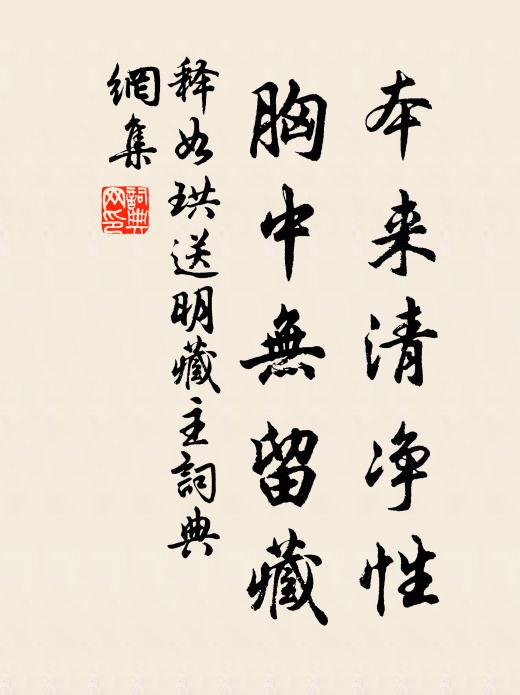 本来清净性
胸中無留藏
释如珙送明藏主詞典
網集
詞典
网印